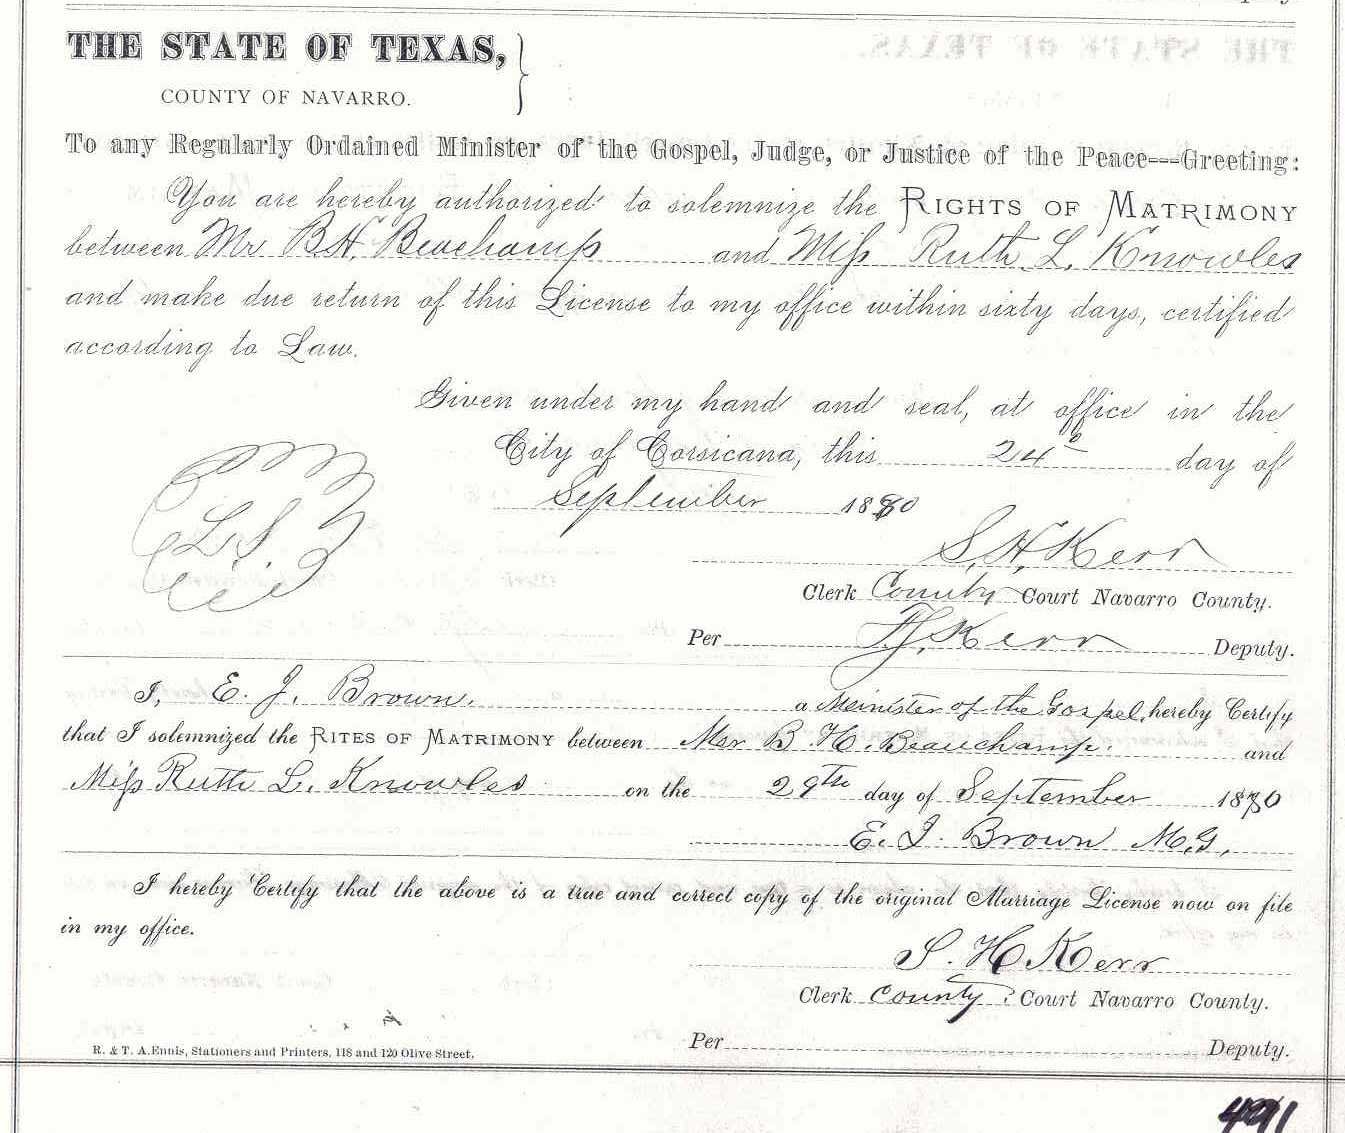 THE STATE OF TEXAS,
COUNTY OF NAVARRO.
To any Regularly Ordained Minister of the Gospel, Judge, or Justice of the Peace---Greeting:
You are hereby authorized to solemnize the RIGHTS OF MATRIMONY
between Mr B.H. Beachamp and Miss Ruth. L. Knowles
and make due return of this License to my office within sixty days, certified
according to Law.
Given under my hand and seal, at office in the
City of Corsicana, this 24 day of
September 1880
L S
S. H. Kerr
Clerk County Court Navarro County.
Per Kerr Deputy.
I, E. J. Brown. a Minister of the Gospel, hereby Certify
that I solemnized the RITES OF MATRIMONY between Mr B. H. Beauchamp. and
Miss Ruth L. Knowles on the 29th day of September 1880
E. J. Brown M.G.
I hereby Certify that the above is a true and correct copy of the original Marriage License now on file
in my office.
S. H. Kerr
Clerk County Court Navarro County.
Per Deputy.
R. & T. A. Ennis, Stationers and Printers, 118 and 120 Olive Street,
491